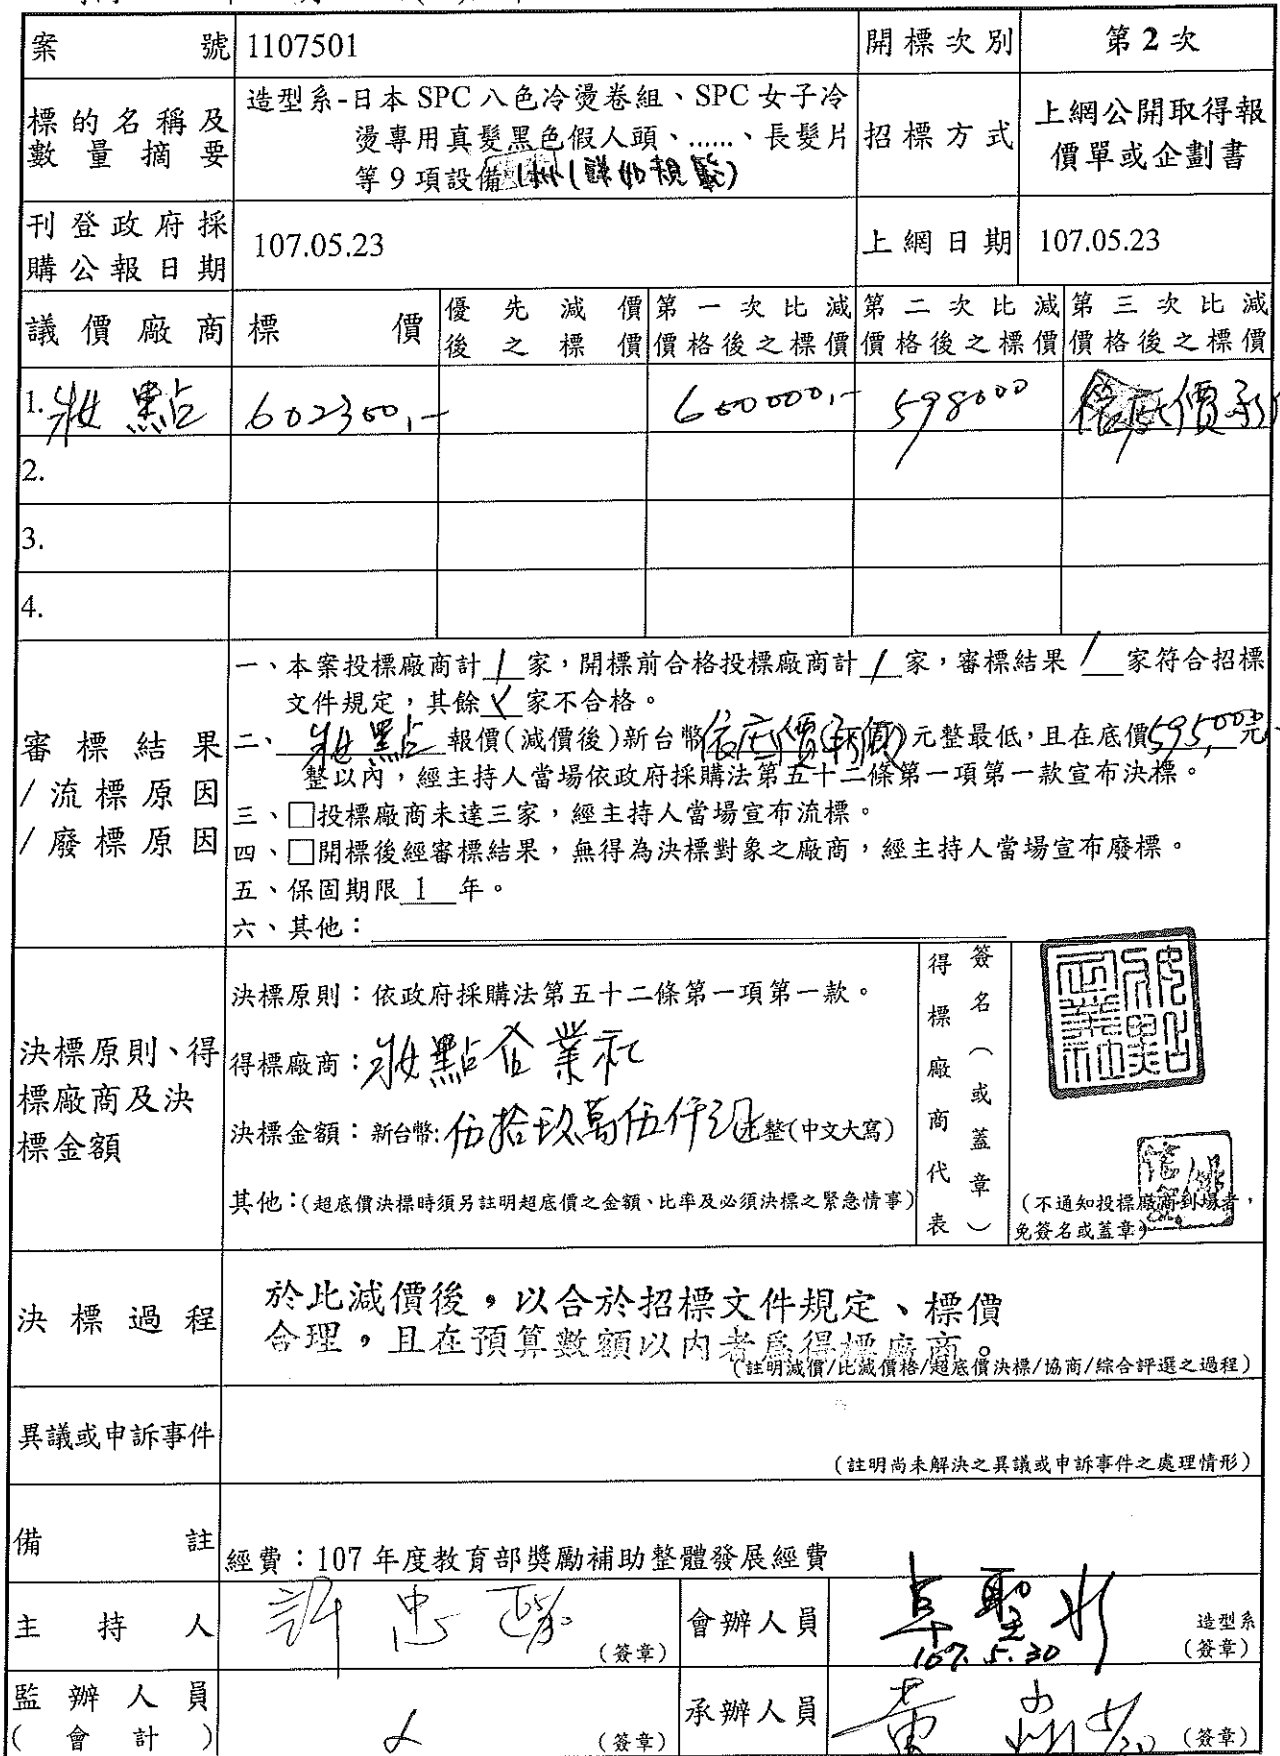 案號 1107501 開標次別 第2次
標的名稱及數量摘要 造型系-日本 SPC 八色冷燙卷組、SPC 女子冷
燙專用真髮黑色假人頭、……、長髮片
等 9 項設備 (詳如規範)
招標方式 上網公開取得報
價單或企劃書
刊登政府採購公報日期 107.05.23 上網日期 107.05.23
議價廠商 標價 優先減價後之標價 第一次比減價格後之標價 第二次比減價格後之標價 第三次比減價格後之標價
1. 妝點 602300,- 600000,- 598000 依底價承
2.
3.
4.
審標結果
/流標原因
/廢標原因
一、本案投標廠商計 1 家，開標前合格投標廠商計 1 家，審標結果 1 家符合招標
文件規定，其餘 家不合格。
二、 妝點 報價(減價後)新台幣依底價承價元整最低，且在底價595,000元
整以內，經主持人當場依政府採購法第五十二條第一項第一款宣布決標。
三、□投標廠商未達三家，經主持人當場宣布流標。
四、□開標後經審標結果，無得為決標對象之廠商，經主持人當場宣布廢標。
五、保固期限 1 年。
六、其他：
決標原則、得
標廠商及決
標金額
決標原則：依政府採購法第五十二條第一項第一款。
得標廠商：妝點企業社
決標金額：新台幣:伍拾玖萬伍仟元整(中文大寫)
其他：(超底價決標時須另註明超底價之金額、比率及必須決標之緊急情事)
得標廠商代表
簽名（或蓋章）
(不通知投標廠商到場者，
免簽名或蓋章)
決標過程
於比減價後，以合於招標文件規定、標價
合理，且在預算數額以內者為得標廠商。
(註明減價/比減價格/超底價決標/協商/綜合評選之過程)
異議或申訴事件
(註明尚未解決之異議或申訴事件之處理情形)
備註
經費：107 年度教育部獎勵補助整體發展經費
主持人 許忠 (簽章) 會辦人員 聖 107.5.30 造型系
(簽章)
監辦人員
(會計) (簽章) 承辦人員 黃 5/30 (簽章)